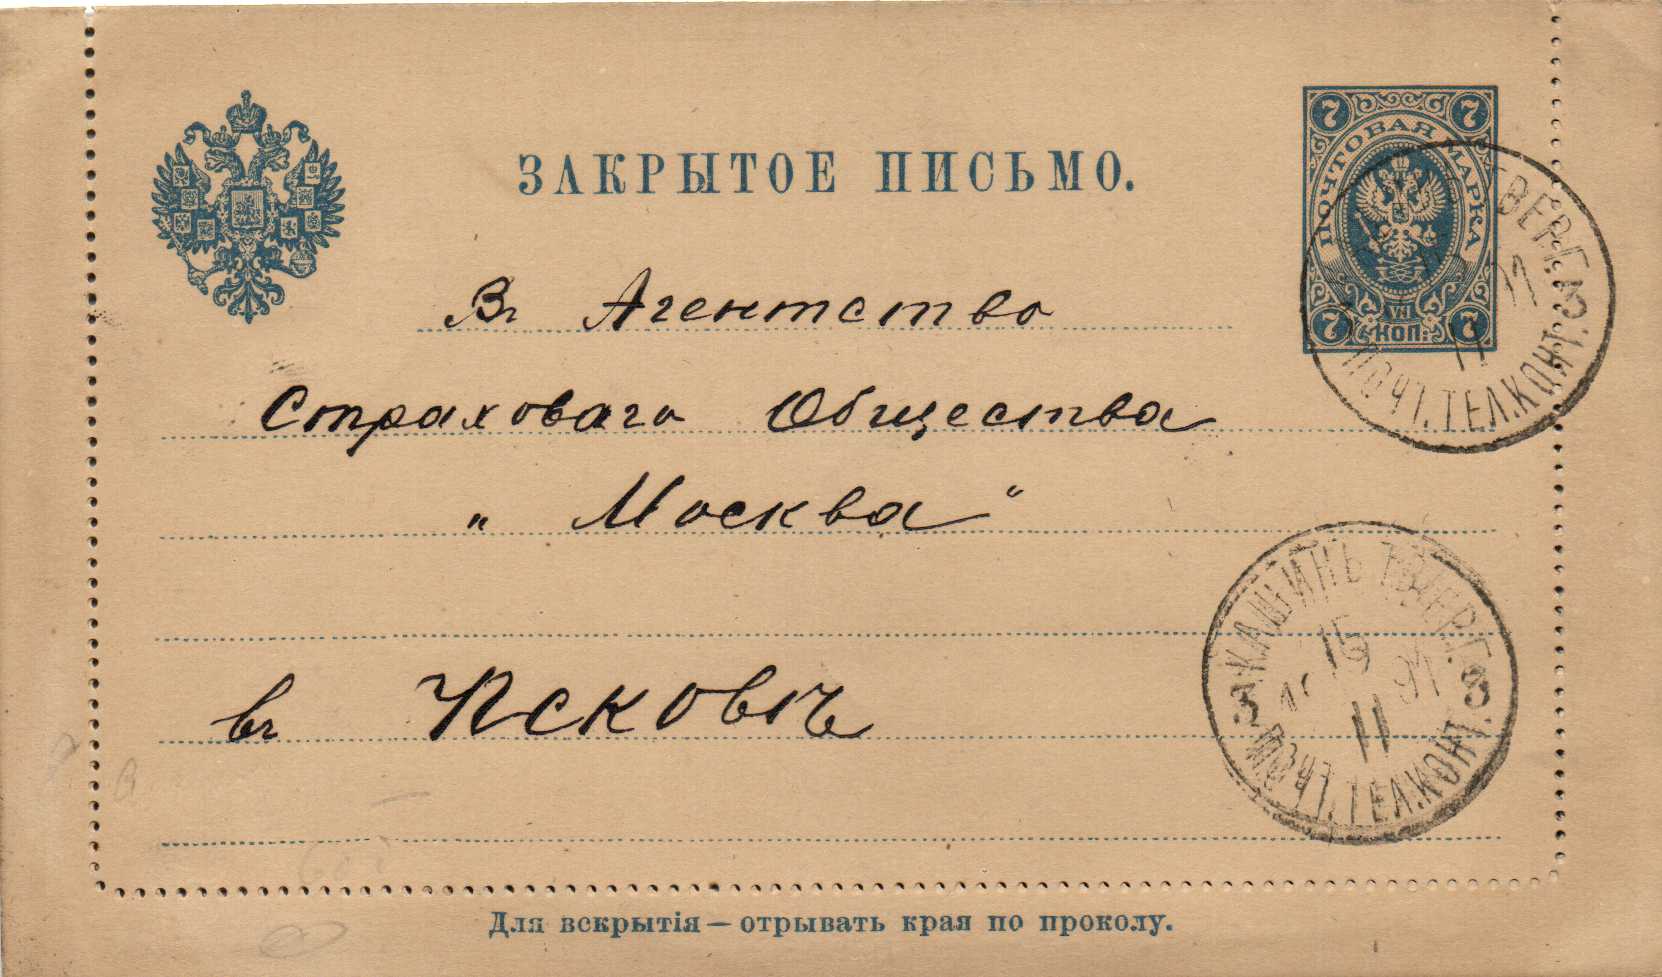 ЗАКРЫТОЕ ПИСЬМО.
7 7
ПОЧТОВАЯ МАРКА
7 VII КОП. 7
Въ Агентство
Страховаго Общества
„Москва“
въ Псковѣ
ТВЕР.Г.
11
3
ПОЧТ.ТЕЛ.КОНТ.
КАШИНЪ ТВЕР.Г.
15
11
3 3
ПОЧТ.ТЕЛ.КОНТ.
Для вскрытія — отрывать края по проколу.